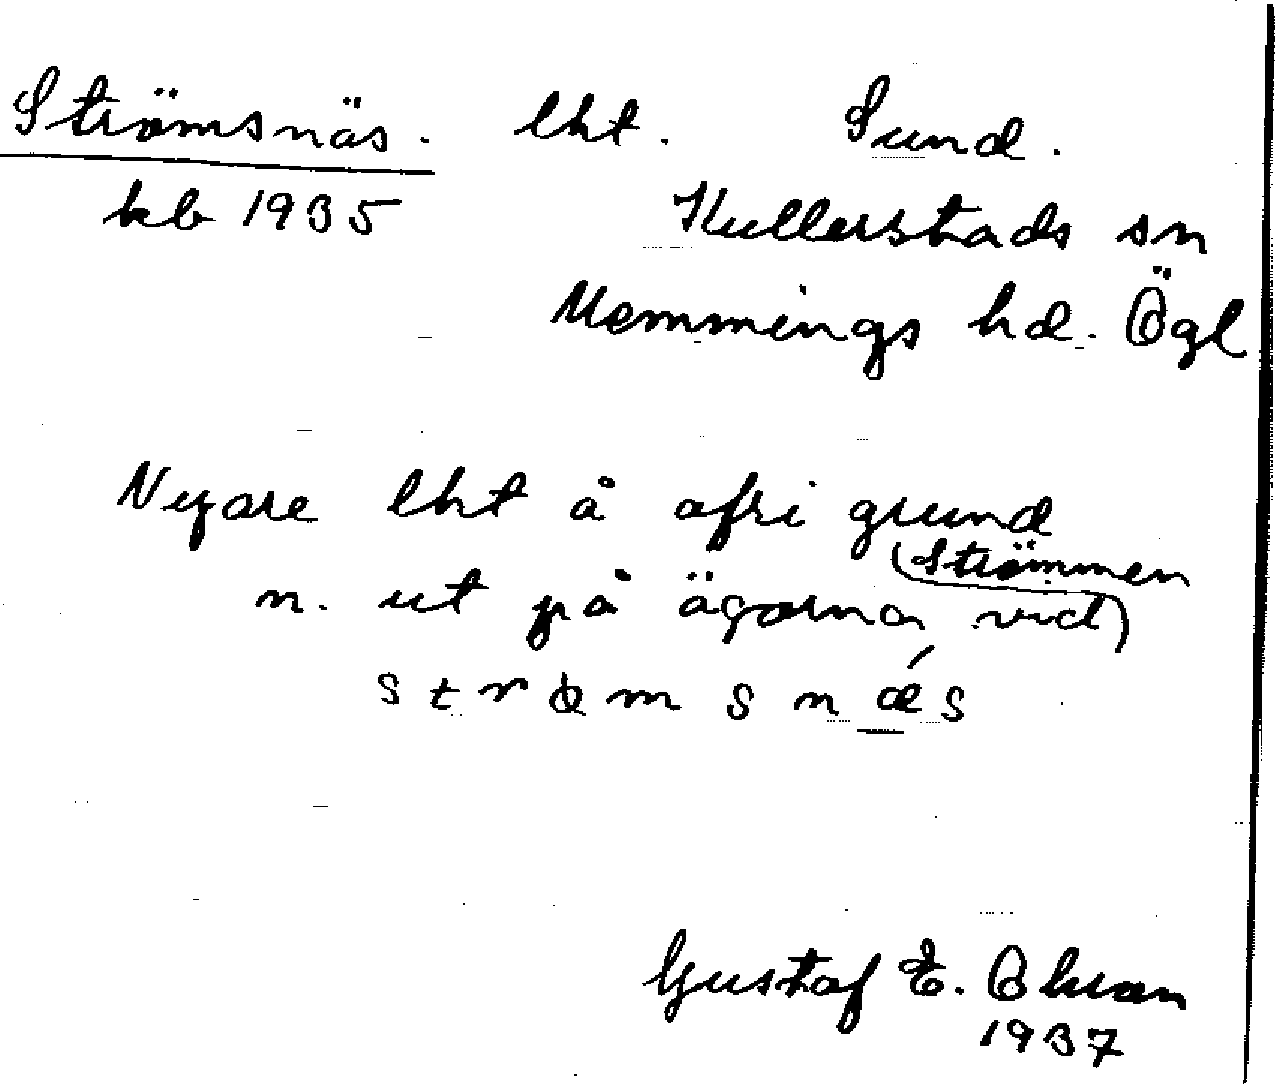 Strömsnäs. lht. Sund.
kb 1935 Kullerstads sn
Memmings hd. Ögl
Nyare lht å ofri grund
n. ut på ägorna vid
Strömmen
strømsnǽs
Gustaf E. Ohran
1937